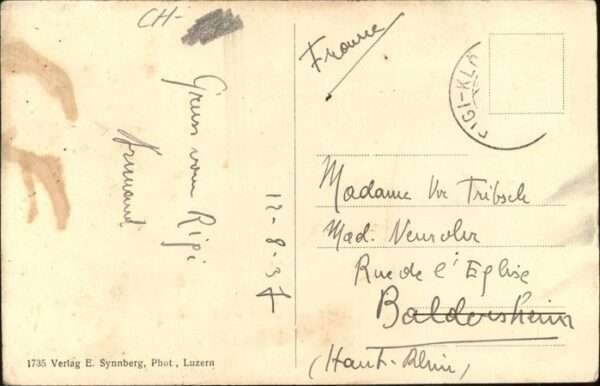 CH-
Gruss vom Rigi
Armand
12-8-37
1735 Verlag E. Synnberg, Phot., Luzern
France
RIGI-KL
Madame Vve Tribsch
Mad.
Rue de l'Eglise
Baldersheim
(Haut-Rhin)